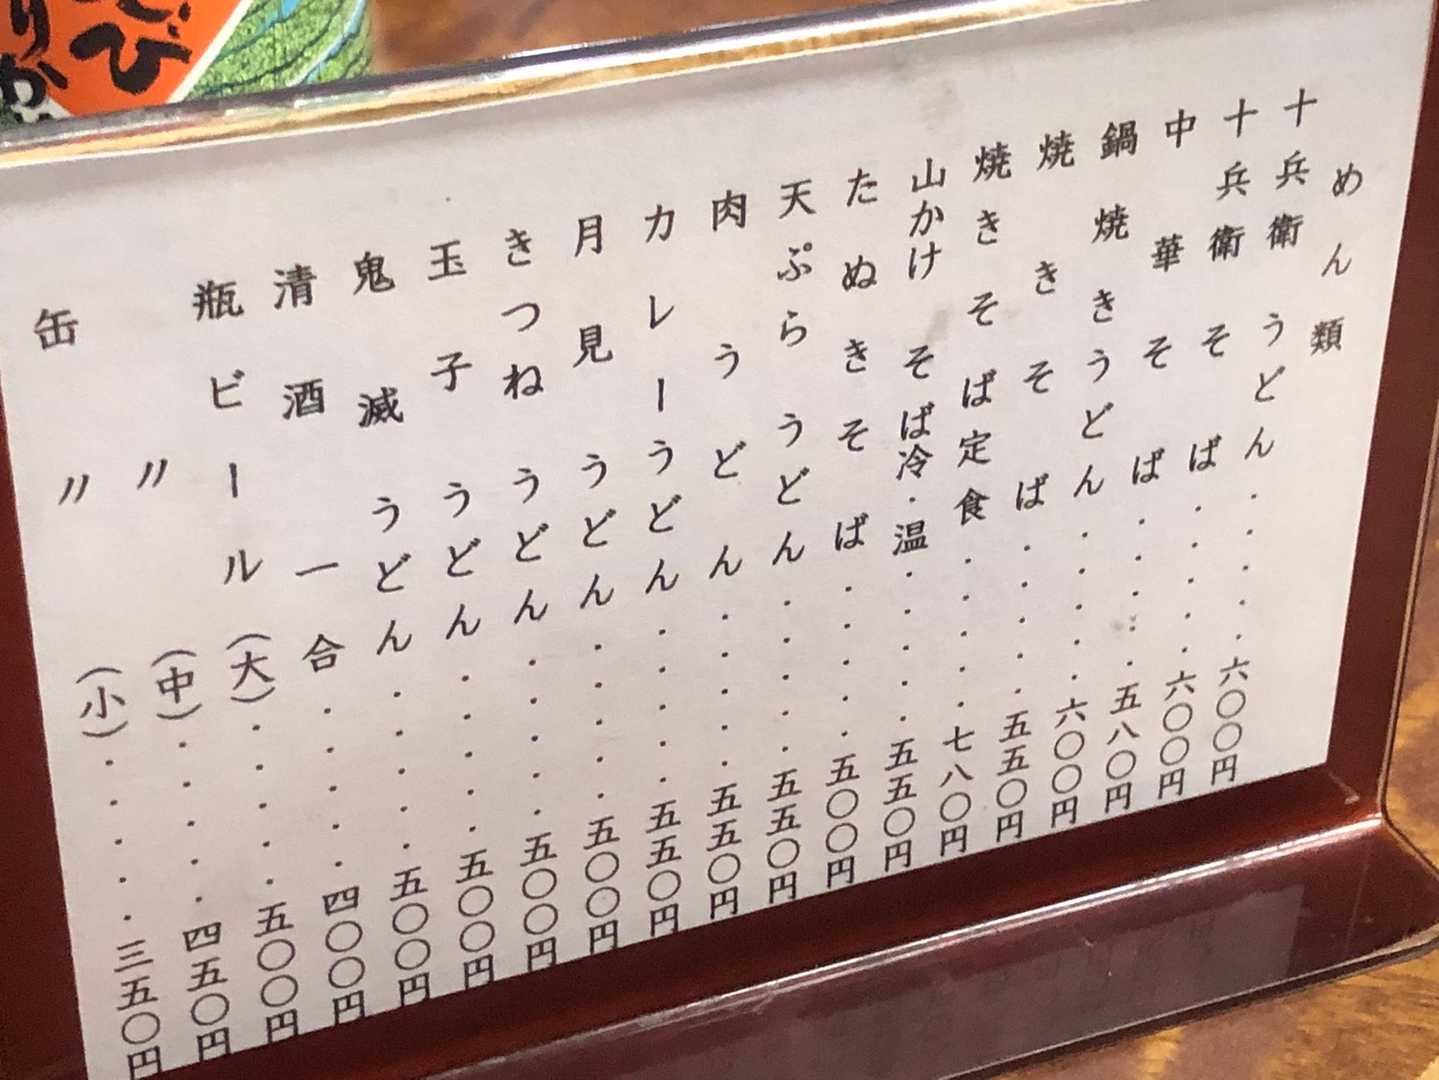 めん類
十兵衛うどん・・・・六〇〇円
十兵衛そば・・・・六〇〇円
中華そば・・・・五八〇円
鍋焼きうどん・・・・六〇〇円
焼きそば・・・・五五〇円
焼きそば定食・・・・七八〇円
山かけそば冷・温・・・・・五五〇円
たぬきそば・・・・・五〇〇円
天ぷらうどん・・・・・五五〇円
肉うどん・・・・・五五〇円
カレーうどん・・・・・五五〇円
月見うどん・・・・・五〇〇円
きつねうどん・・・・・五〇〇円
玉子うどん・・・・・五〇〇円
鬼滅うどん・・・・・五〇〇円
清酒一合・・・・・四〇〇円
瓶ビール(大)・・・・・五〇〇円
〃(中)・・・・・四五〇円
缶〃(小)・・・・・三五〇円